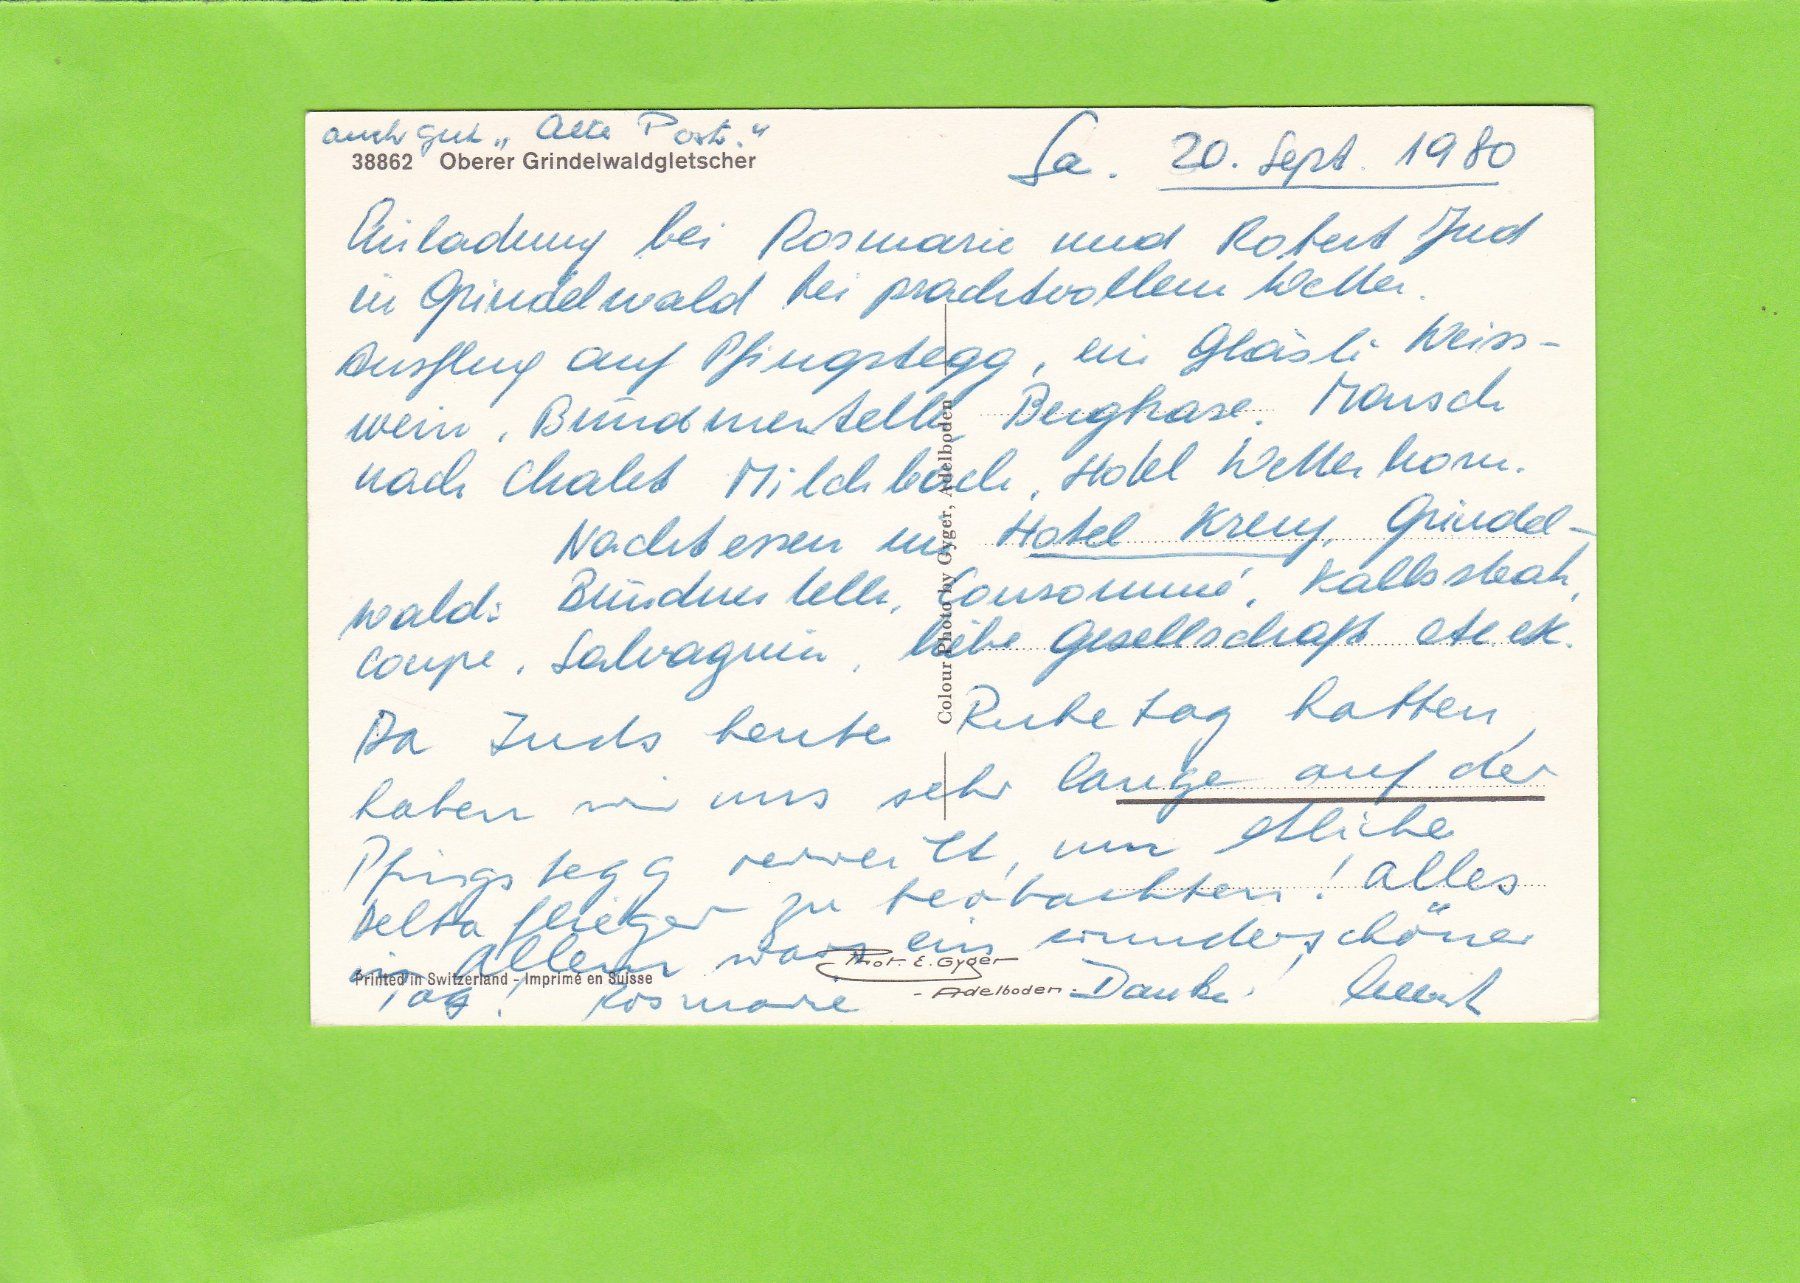 auch gut „Alte Post."
38862 Oberer Grindelwaldgletscher
Sa. 20. Sept. 1980
Einladung bei Rosmarie und Robert Jud
in Grindelwald bei prachtvollem Wetter.
Ausflug auf Pfingstegg, ein Gläsli Weiss-
wein, Bündnerteller, Bergkäse. Marsch
nach Chalet Milchbach, Hotel Wetterhorn.
Nachtessen im Hotel Kreuz, Grindel-
wald: Bündnerteller, Consommé, Kalbssteak,
Coupe, Salvagnin, liebe Gesellschaft etc etc.
Da Juds heute Ruhetag hatten,
haben wir uns sehr lange auf der
Pfingstegg verweilt, um etliche
Deltaflieger zu beobachten! Alles
in Allem war ein wunderschöner
Tag! Rosmarie Danke!
Colour Photo by Gyger, Adelboden
Printed in Switzerland - Imprimé en Suisse
Phot. E. Gyger
- Adelboden -